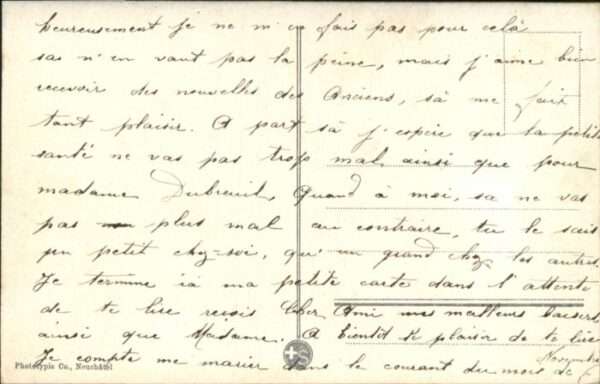 heureusement je ne m'en fais pas pour celà
sas n'en vaut pas la peine, mais j'aime bien
recevoir des nouvelles des Anciens, sà me fait
tant plaisir. A part sà j'espère que ta petite
santé ne vas pas trop mal ainsi que pour
madame Dubreuil, Quand à moi, sa ne vas
pas plus mal au contraire, tu le sais
un petit chez-soi, qu'un grand chez les autres.
Je termine ià ma petite carte dans l'attente
de te lire reçois Cher Ami mes meilleurs baisers
ainsi que Madame. A bientôt le plaisir de te lire
Je compte me marier dans le courant du mois de
Novembre
Phototypie Co., Neuchâtel